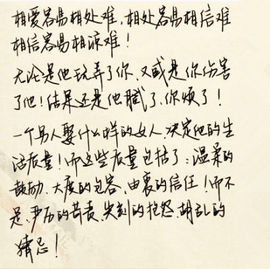 相爱容易相处难，相处容易相信难
相信容易相谅难！
无论是他玩弄了你，又或是你伤害
了他！结果还是他腻了，你烦了！
一个男人娶什么样的女人，决定他的生
活质量！而这些质量包括了：温柔的
鼓励、大度的包容、由衷的信任！而不
是，严厉的苛责、尖刻的抱怨、胡乱的
猜忌！